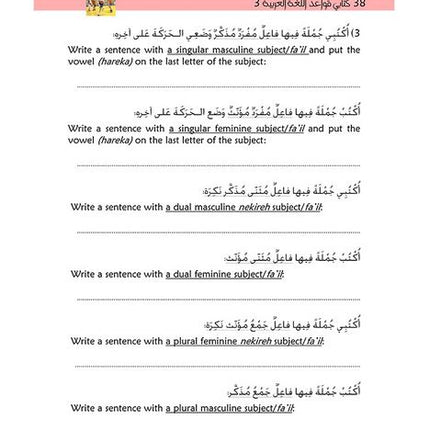 38 كتابي قواعد اللغة العربية 3
3) أُكْتُبي جُمْلَةً فيها فاعِلٌ مُفْرَدٌ مُذَكَّرٌ وَضَعِي الـحَرَكَةَ عَلى آخِرِهِ:
Write a sentence with a singular masculine subject/fa'il and put the
vowel (hareka) on the last letter of the subject:
أُكْتُبْ جُمْلَةً فيها فاعِلٌ مُفْرَدٌ مُؤَنَّثٌ وَضَعِ الـحَرَكَةَ عَلى آخِرِهِ:
Write a sentence with a singular feminine subject/fa'il and put the
vowel (hareka) on the last letter of the subject:
أُكْتُبي جُمْلَةً فيها فاعِلٌ مُثَنّى مُذَكَّر نَكِرَة:
Write a sentence with a dual masculine nekireh subject/fa'il:
أُكْتُبْ جُمْلَةً فيها فاعِلٌ مُثَنّى مُؤَنَّث:
Write a sentence with a dual feminine subject/fa'il:
أُكْتُبي جُمْلَةً فيها فاعِلٌ جَمْعُ مُؤَنَّث نَكِرَة:
Write a sentence with a plural feminine nekireh subject/fa'il:
أُكْتُبْ جُمْلَةً فيها فاعِلٌ جَمْعُ مُذَكَّر:
Write a sentence with a plural masculine subject/fa'il: